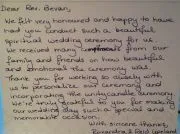 Dear Rev. Bevan,
We felt very honoured and happy to have
had you conduct such a beautiful,
spiritual wedding ceremony for us.
We received many compliments from our
family and friends on how beautiful
and the ceremony was.
Thank you for working so closely with
us to personalize our ceremony and
incorporating the unity candle ceremony.
We're truly thankful to you for making
our wedding day such a special and
memorable occasion.
With sincere thanks,